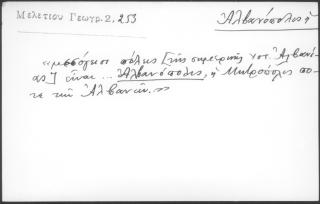 Μελετίου Γεωγρ. 2, 253
Ἀλβανόπολις ἡ
«μεσόγειοι πόλεις [τῆς σημερινῆς νοτ. Ἀλβανί-
ας] εἶναι ... Ἀλβανόπολις, ἡ Μητρόπολις πο-
τε τῶν Ἀλβανῶν.»